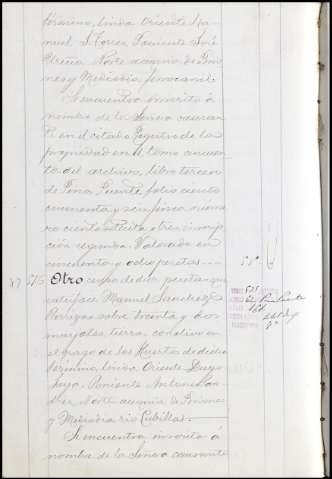 termino, linda Oriente Ma-
nuel S. Torres Poniente José
Ureña Norte acequia de Brio-
nes y Mediodia ferrocarril
Se encuentra inscrito á
nombre de la Señora causan-
te en el citado Registro de la
propiedad en el tomo
del archivo, libro tercero
de Pinos Puente folio ciento
cincuenta y seis finca nume-
ro ciento setenta y tres inscrip-
ción segunda. Valorado en
cincuenta y ocho pesetas
58
Otro censo de diez pesetas que
satisface Manuel Sanchez
sobre treinta y dos
marjales tierra calma en
el pago de las Huertas de dicho
termino, linda Oriente Diego
Poniente Antonio
Norte acequia de Briones
y Mediodia rio Cubillas.
Se encuentra inscrito á
nombre de la Señora causante